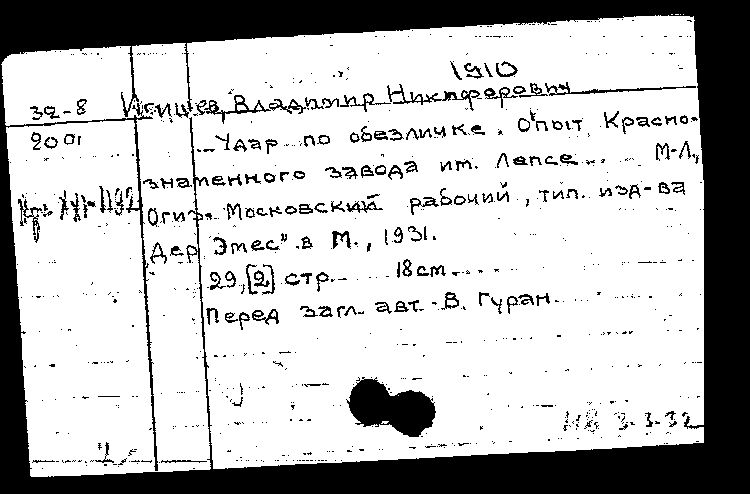 1910
32-8 Владимир Никифорович
2001 Удар по обезличке. Опыт Красно-
знаменного завода им. Лепсе... М-Л.,
Огиз. Московский рабочий, тип. изд-ва
Дер Эмес" в М., 1931.
29, [2] стр. 18 см.
Перед загл. авт. В. Гуран
3-3-32